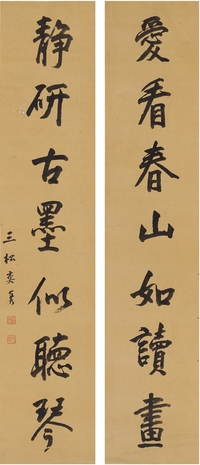 愛看春山如讀畫
静研古墨似聽琴
三松